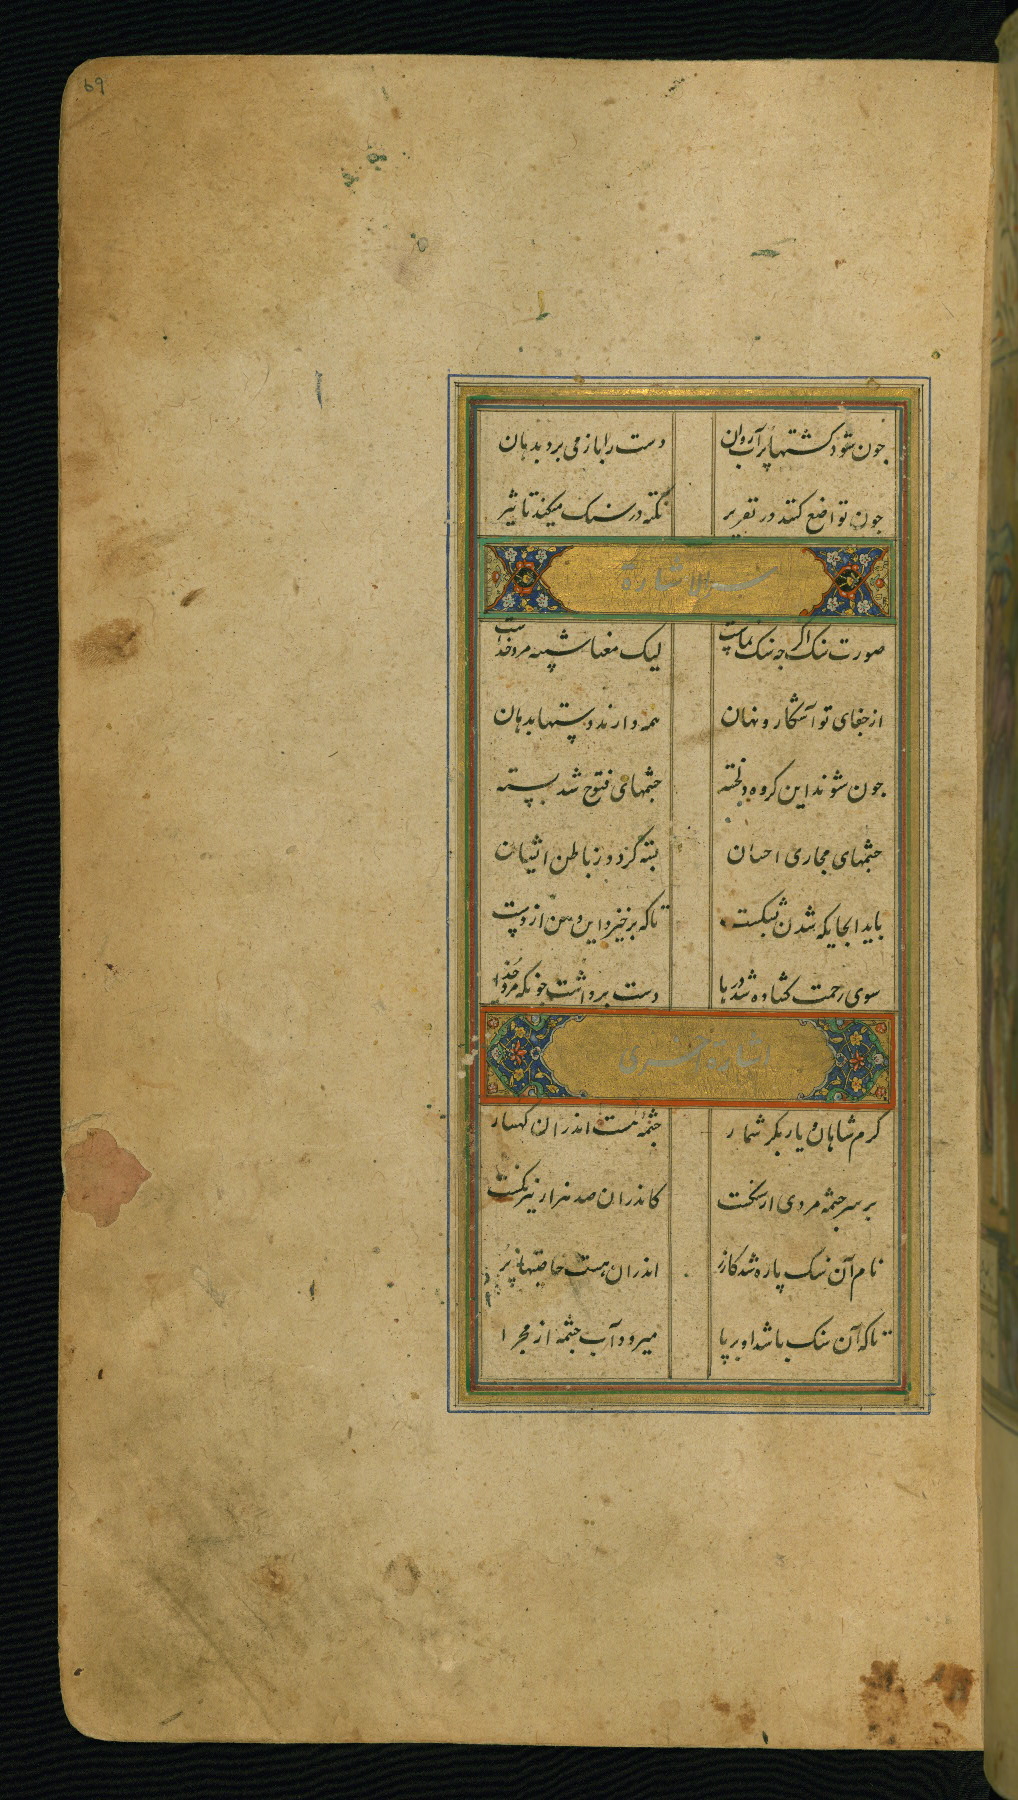 69
جون شود کشتها پر آب روان دست را باز می برد بدهان
جون تواضع کنند در تقریر نکته در سنک میکند تاثیر
سر الاشارة
صورت سنک اکر جه سنک نماست لیک معناش پسه مرد خداست
از جفای تو آشکار و نهان همه دارند دستها بدهان
جون شوند این کروه دلخسته جشمهای فتوح شد بسته
جشمهای مجاری احسان بسته کردد ز باطن ایشان
باید آنجا یکه شدن بنشکست تا که برخیزد این دهن از دست
سوی رحمت کشاده شد درها دست برداشت جونکه مرد خدا
اشارة اخری
کرم شاهان دیار بکر شمار جشمه است اندران کهسار
بر سر جشمه مردی از سنکست کاندران صد هزار نیرنکست
نام آن سنک پاره شد کازر اندران هست خاصیتها پر
تا که آن سنک باشد او بر پا میرود آب جشمه از مجرا